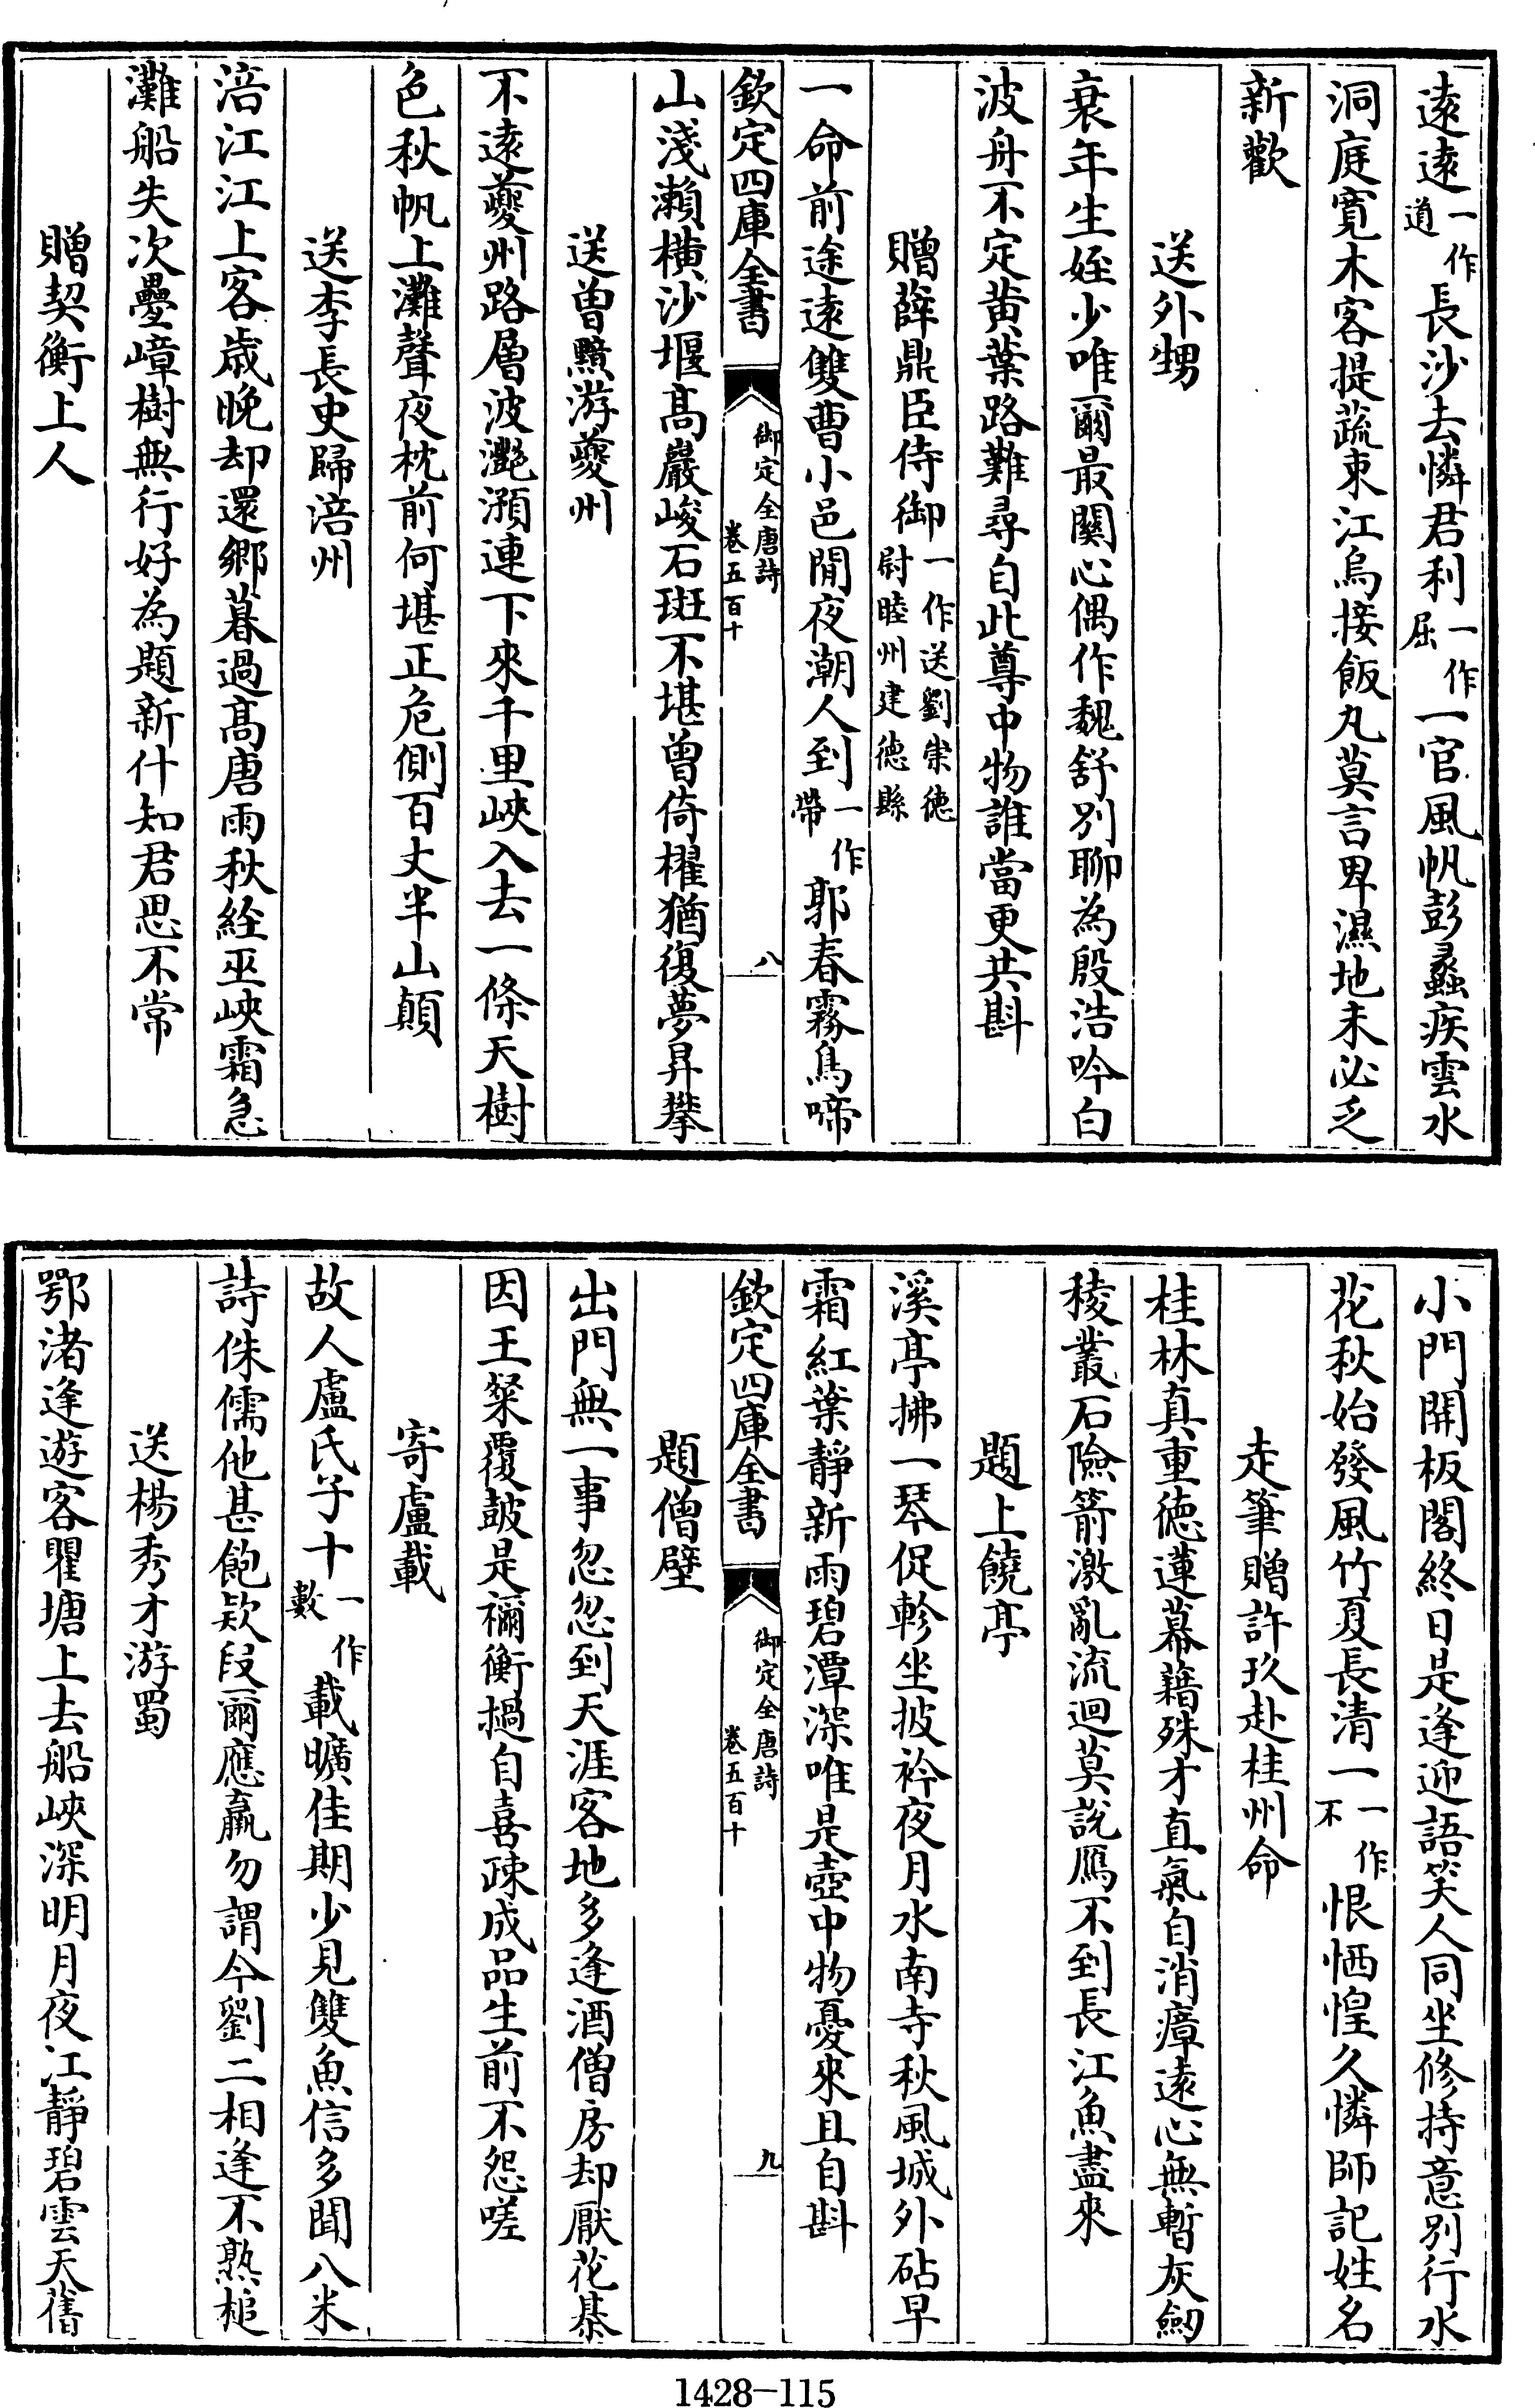 遠遠一作道長沙去憐君利一作屈一官風帆彭蠡疾雲水
洞庭寛木客提蔬束江烏接飯丸莫言卑濕地未必乏
新歡
送外甥
衰年生姪少唯爾最關心偶作魏舒别聊為殷浩吟白
波舟不定黄葉路難尋自此尊中物誰當更共斟
贈薛鼎臣侍御一作送劉崇徳尉睦州建徳縣
一命前途遠雙曹小邑閒夜潮人到一作帶郭春霧鳥啼
欽定四庫全書
御定全唐詩
卷五百十
八
山淺瀨横沙堰髙巖峻石斑不堪曽倚櫂猶復夢昇攀
送曽黯游夔州
不遠夔州路層波灔澦連下來千里峽入去一條天樹
色秋帆上灘聲夜枕前何堪正危側百丈半山顛
送李長史歸涪州
涪江江上客歲晚却還鄉暮過髙唐雨秋經巫峽霜急
灘船失次疊嶂樹無行好為題新什知君思不常
贈契衡上人
小門開板閣終日是逢迎語笑人同坐修持意别行水
花秋始發風竹夏長清一一作不恨恓惶久憐師記姓名
走筆贈許玖赴桂州命
桂林真重徳蓮幕藉殊才直氣自消瘴遠心無暫灰劒
稜叢石險箭激亂流迴莫說鴈不到長江魚盡來
題上饒亭
溪亭拂一琴促軫坐披衿夜月水南寺秋風城外砧早
霜紅葉靜新雨碧潭深唯是壺中物憂來且自斟
欽定四庫全書
御定全唐詩
卷五百十
九
題僧壁
出門無一事忽忽到天涯客地多逢酒僧房却厭花棊
因王粲覆鼓是禰衡撾自喜疎成品生前不怨嗟
寄盧載
故人盧氏子十一作數載曠佳期少見雙魚信多聞八米
詩侏儒他甚飽欵段爾應羸勿謂今劉二相逢不熟槌
送楊秀才游蜀
鄂渚逢遊客瞿塘上去船峽深明月夜江靜碧雲天舊
1428-115